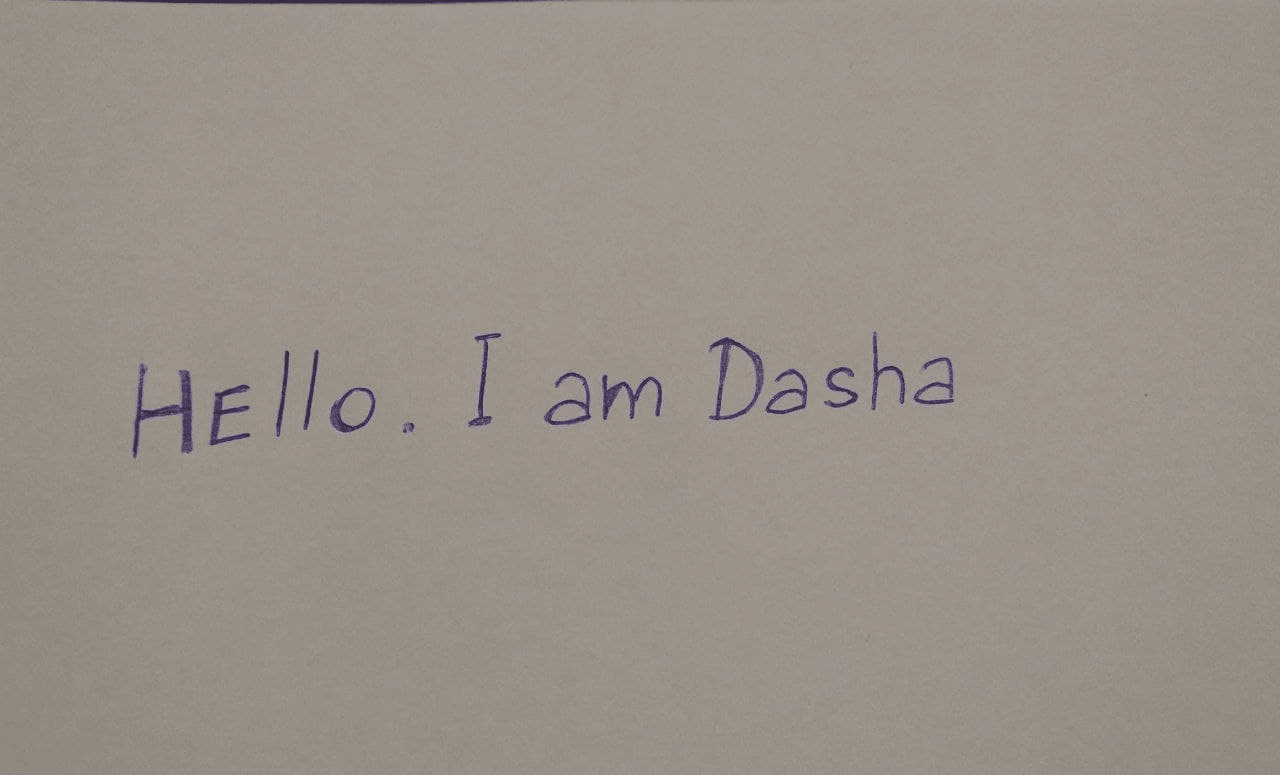 HEllo. I am Dasha